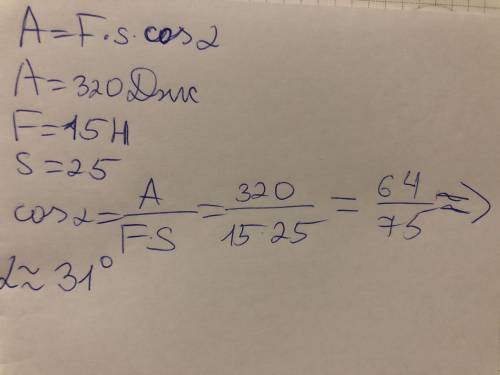 A = F·s·cos α
A = 320 Дж
F = 15 Н
S = 25
cos α = A/(F·S) = 320/(15·25) = 64/75 ≈>
α ≈ 31°